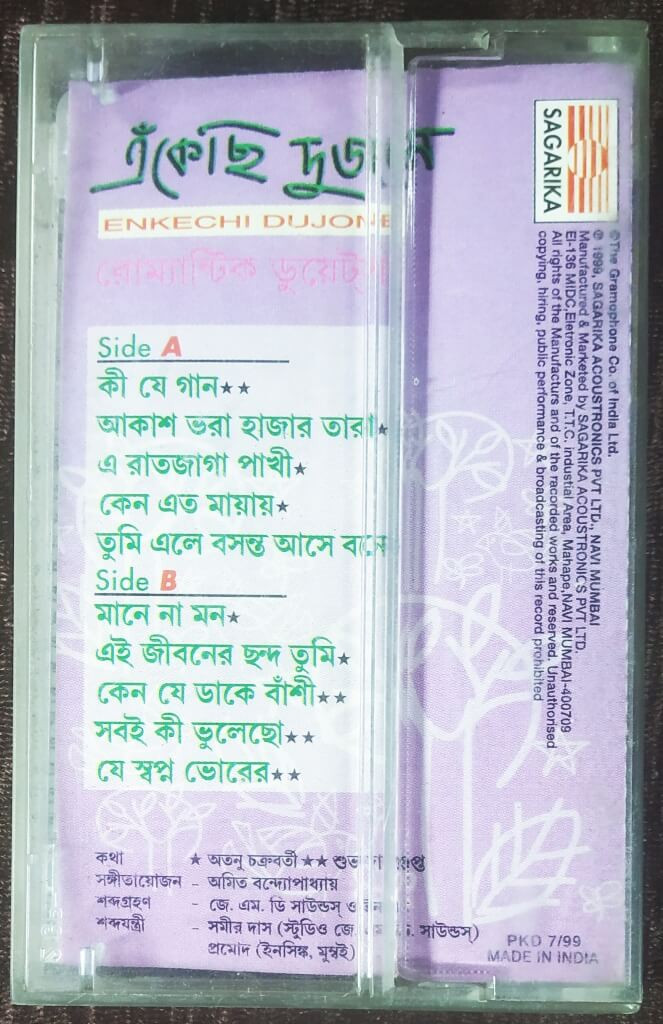 এঁকেছি দুজনে
ENKECHI DUJONE
রোম্যান্টিক ডুয়েট্
Side A
কী যে গান★★
আকাশ ভরা হাজার তারা★
এ রাতজাগা পাখী★
কেন এত মায়ায়★
তুমি এলে বসন্ত আসে
Side B
মানে না মন★
এই জীবনের ছন্দ তুমি★
কেন যে ডাকে বাঁশী★★
সবই কী ভুলেছো★★
যে স্বপ্ন ভোরের★★
কথা ★ অতনু চক্রবর্তী ★★
সঙ্গীতায়োজন - অমিত বন্দ্যোপাধ্যায়
শব্দগ্রহণ - জে. এম. ডি সাউন্ডস্ ও
শব্দযন্ত্রী - সমীর দাস (স্টুডিও জে. সাউন্ডস্)
প্রমোদ (ইনসিঙ্ক, মুম্বই)
SAGARIKA
©The Gramophone Co. of India Ltd.
℗ 1999, SAGARIKA ACOUSTRONICS PVT LTD., NAVI MUMBAI
Manufactured & Marketed by SAGARIKA ACOUSTRONICS PVT LTD.
El-136 MIDC,Eletronic Zone, T.T.C. industial Area, Mahape,NAVI MUMBAI-400709
All rights of the Manufacture and of the recorded works and reserved. Unauthorised
copying, hiring, public performance & broadcasting of this record prohibited
PKD 7/99
MADE IN INDIA